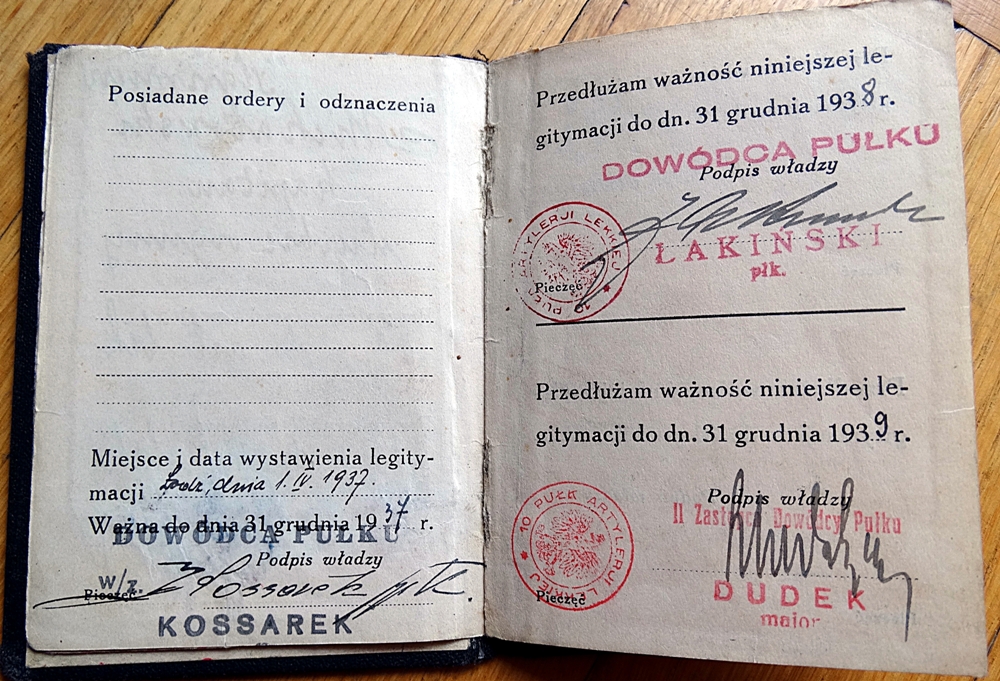 Posiadane ordery i odznaczenia
Miejsce i data wystawienia legity-
macji Łódź, dnia 1.IV.1937.
Ważna do dnia 31 grudnia 1937 r.
DOWÓDCA PUŁKU
Podpis władzy
w/z.
Pieczęć
Kossarek ppłk.
KOSSAREK
Przedłużam ważność niniejszej le-
gitymacji do dn. 31 grudnia 1938 r.
DOWÓDCA PUŁKU
Podpis władzy
ŁAKIŃSKI
płk.
10 PUŁK ARTYLERJI LEKKIEJ
Pieczęć
Przedłużam ważność niniejszej le-
gitymacji do dn. 31 grudnia 1939 r.
Podpis władzy
II Zastępca Dowódcy Pułku
10 PUŁK ARTYLERJI LEKKIEJ
Pieczęć
DUDEK
major